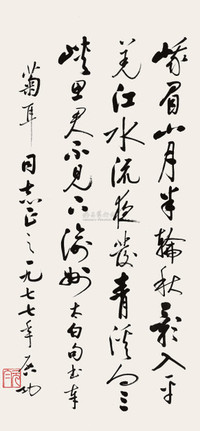 峨眉山月半輪秋影入平
羌江水流夜發青溪向三
峽思君不見下渝州 太白句書奉
菊耳同志正之 一九七七年 启功